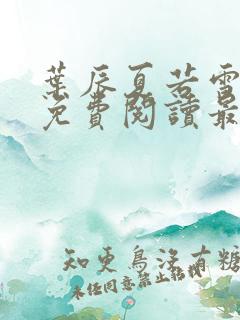 葉辰夏若雪
免費閱讀最
知更鳥沒有糖
未经同意禁止转载